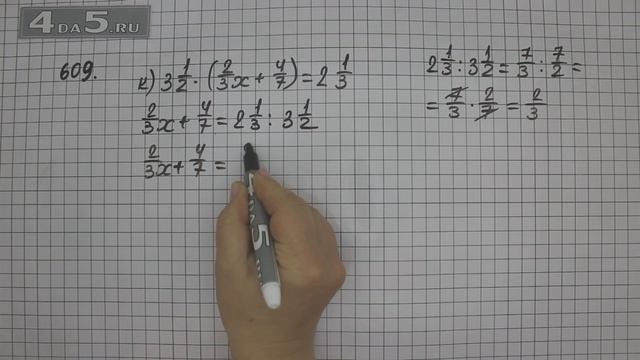 4DA5.RU
609.
к) 3 1/2 · (2/3 x + 4/7) = 2 1/3
2/3 x + 4/7 = 2 1/3 : 3 1/2
2/3 x + 4/7 =
2 1/3 : 3 1/2 = 7/3 : 7/2 =
= 7/3 · 2/7 = 2/3